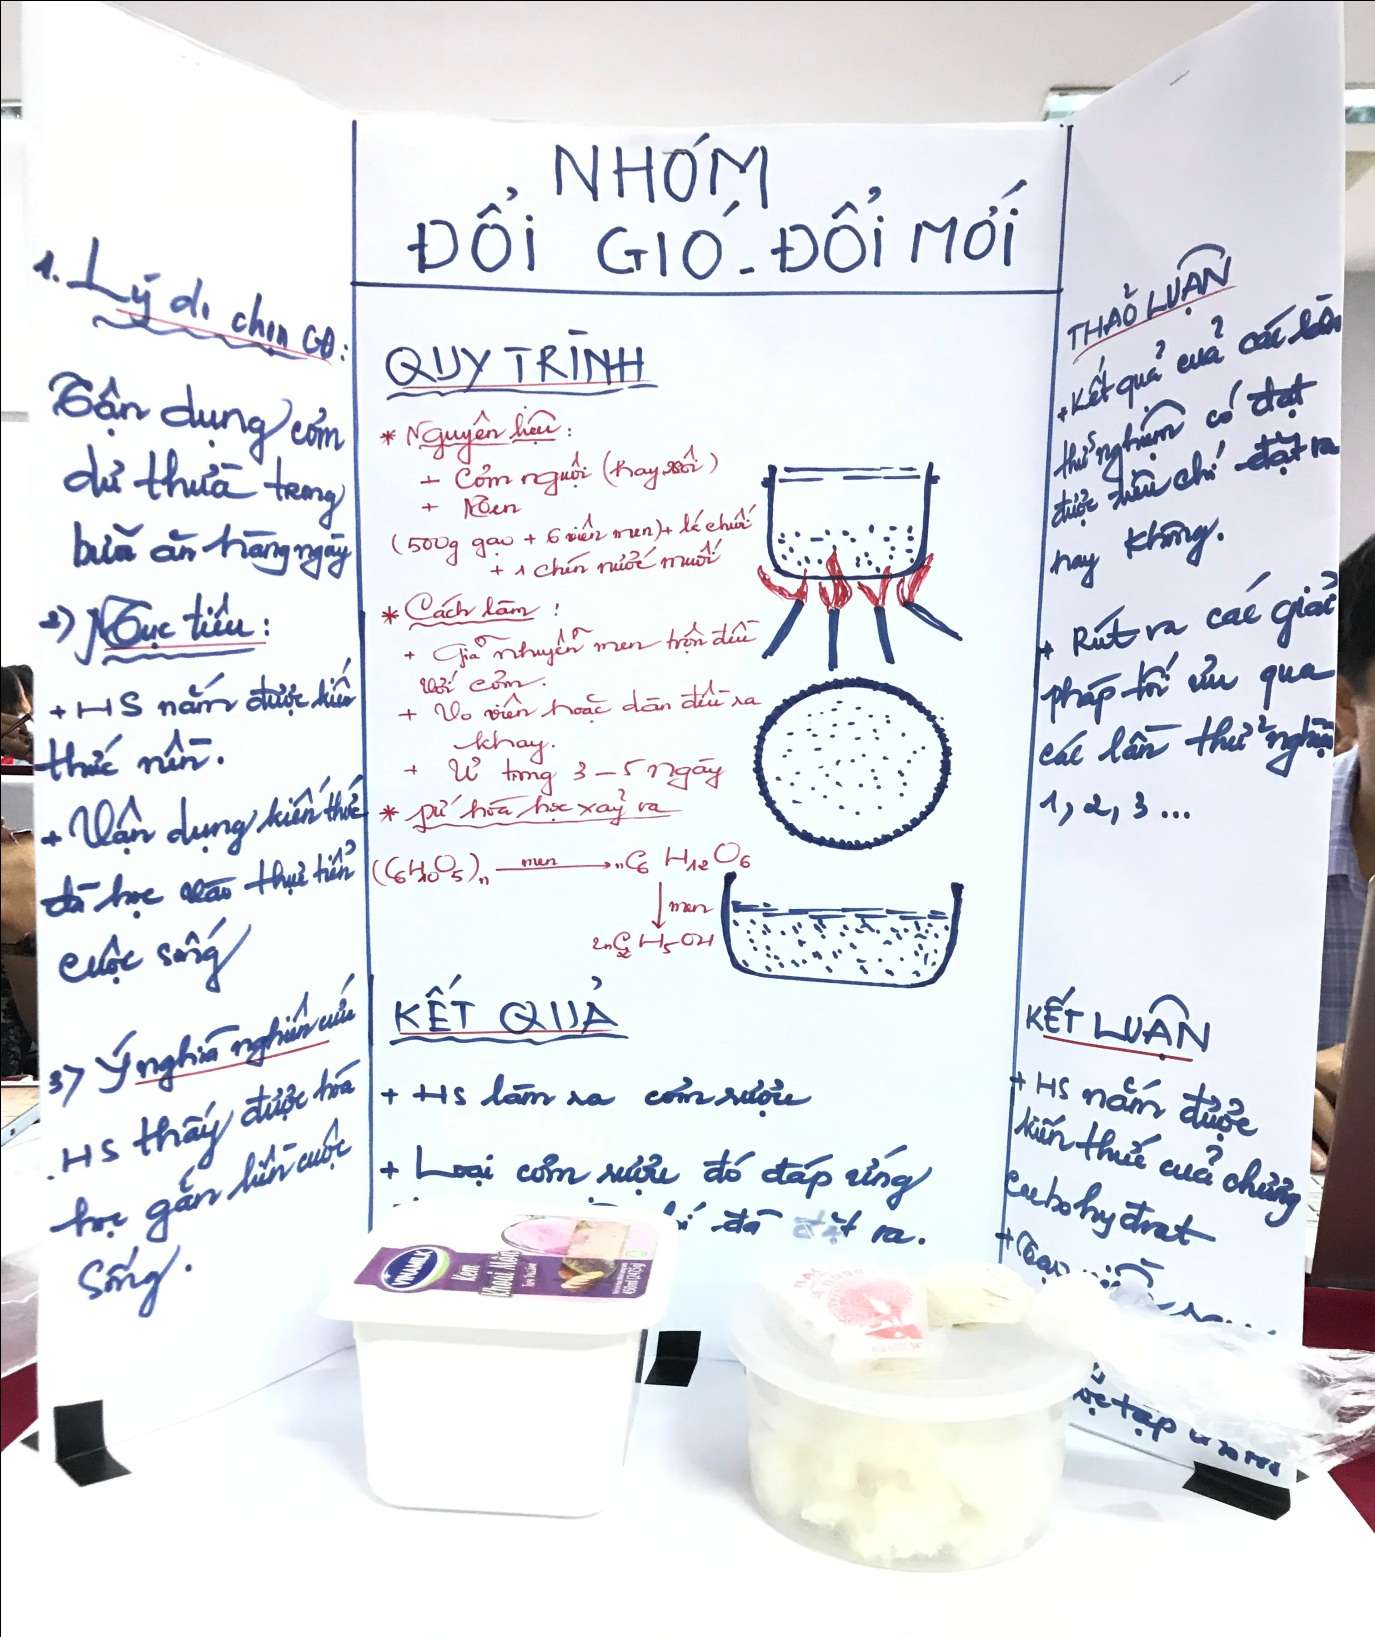 NHÓM
ĐỔI GIÓ - ĐỔI MỚI
1. Lý do chọn CĐ:
Tận dụng cơm
dư thừa trong
bữa ăn hàng ngày
2) Mục tiêu:
+ HS nắm được kiến
thức nền.
+ Vận dụng kiến thức
đã học vào thực tiễn
cuộc sống
3) Ý nghĩa nghiên cứu
. HS thấy được hóa
học gắn liền cuộc
sống.
QUY TRÌNH
* Nguyên liệu:
+ Cơm nguội (hay xôi)
+ Men
(500g gạo + 6 viên men) + lá chuối
+ 1 chén nước muối
* Cách làm:
+ Giã nhuyễn men trộn đều
với cơm.
+ Vo viên hoặc dàn đều ra
khay.
+ Ủ trong 3 - 5 ngày
* pứ hóa học xảy ra
(C6H10O5)n men → nC6H12O6
↓ men
2nC2H5OH
KẾT QUẢ
+ HS làm ra cơm rượu
+ Loại cơm rượu đó đáp ứng
đã đặt ra.
THẢO LUẬN
+ Kết quả của các lần
thử nghiệm có đạt
được tiêu chí đặt ra
hay không.
+ Rút ra các giải
pháp tối ưu qua
các lần thử nghiệm
1, 2, 3 ...
KẾT LUẬN
+ HS nắm được
kiến thức của chương
cacbohydrat
+ Tạo
tập
VINAMILK
Kem
Khoai Môn
450ml